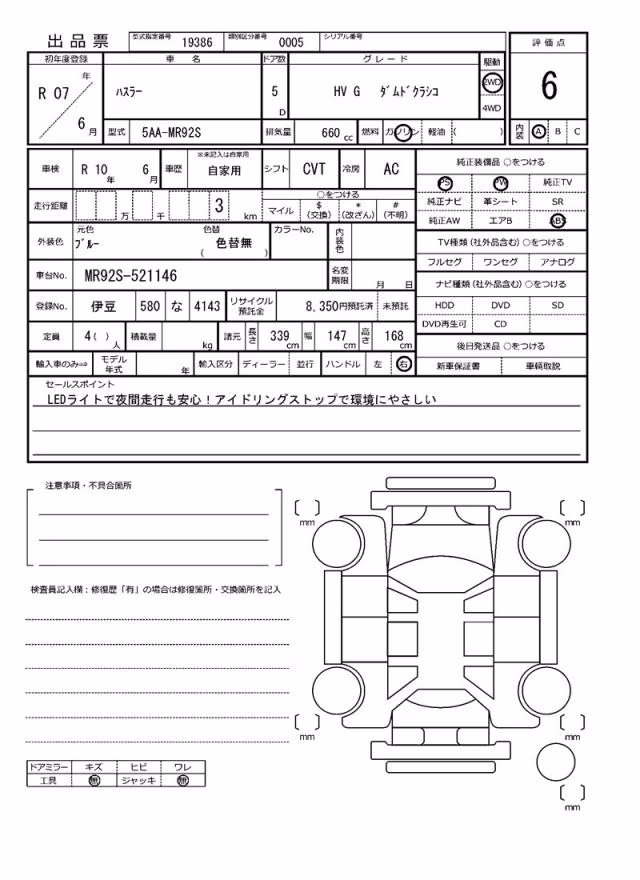 出品票 型式指定番号 19386 類別区分番号 0005 シリアル番号
評価点
6
内装 A B C
初年度登録 車名 ドア数 グレード 駆動
R 07 年 6 月 ハスラー 5 D HV G ダムドクラシコ 2WD 4WD
型式 5AA-MR92S 排気量 660 cc 燃料 ガソリン 軽油 ( )
車検 R 10 年 6 月 車歴 ※未記入は自家用 自家用 シフト CVT 冷房 AC
走行距離 万 千 3 km ○をつける マイル $ (交換) * (改ざん) # (不明)
外装色 元色 ブルー 色替 色替無 ( ) カラーNo. 内装色
車台No. MR92S-521146 名変期限 月 日
登録No. 伊豆 580 な 4143 リサイクル預託金 8,350円預託済 未預託
定員 4( ) 人 積載量 kg 諸元 長さ 339 cm 幅 147 cm 高さ 168 cm
輸入車のみ⇒ モデル年式 年 輸入区分 ディーラー 並行 ハンドル 左 右
純正装備品 ○をつける
PS PW 純正TV
純正ナビ 革シート SR
純正AW エアB ABS
TV種類 (社外品含む) ○をつける
フルセグ ワンセグ アナログ
ナビ種類 (社外品含む) ○をつける
HDD DVD SD
DVD再生可 CD
後日発送品 ○をつける
新車保証書 車輌取説
セールスポイント
LEDライトで夜間走行も安心！アイドリングストップで環境にやさしい
注意事項・不具合箇所
検査員記入欄：修復歴「有」の場合は修復箇所・交換箇所を記入
ドアミラー キズ ヒビ ワレ
工具 無 ジャッキ 無
[ ] mm
[ ] mm
[ ] mm
[ ] mm
[ ] mm